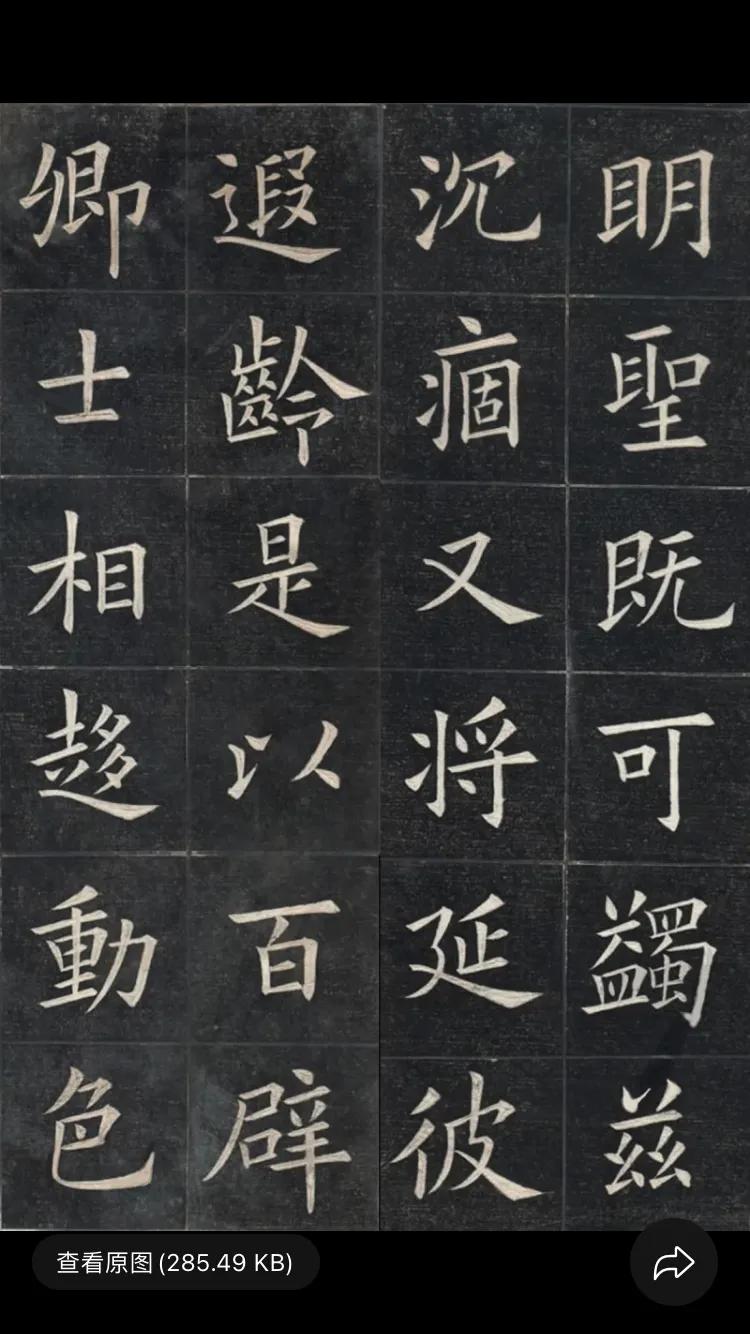 明聖既可蠲兹
沉痼又将延彼
遐齡是以百辟
卿士相趍動色
查看原图(285.49 KB)